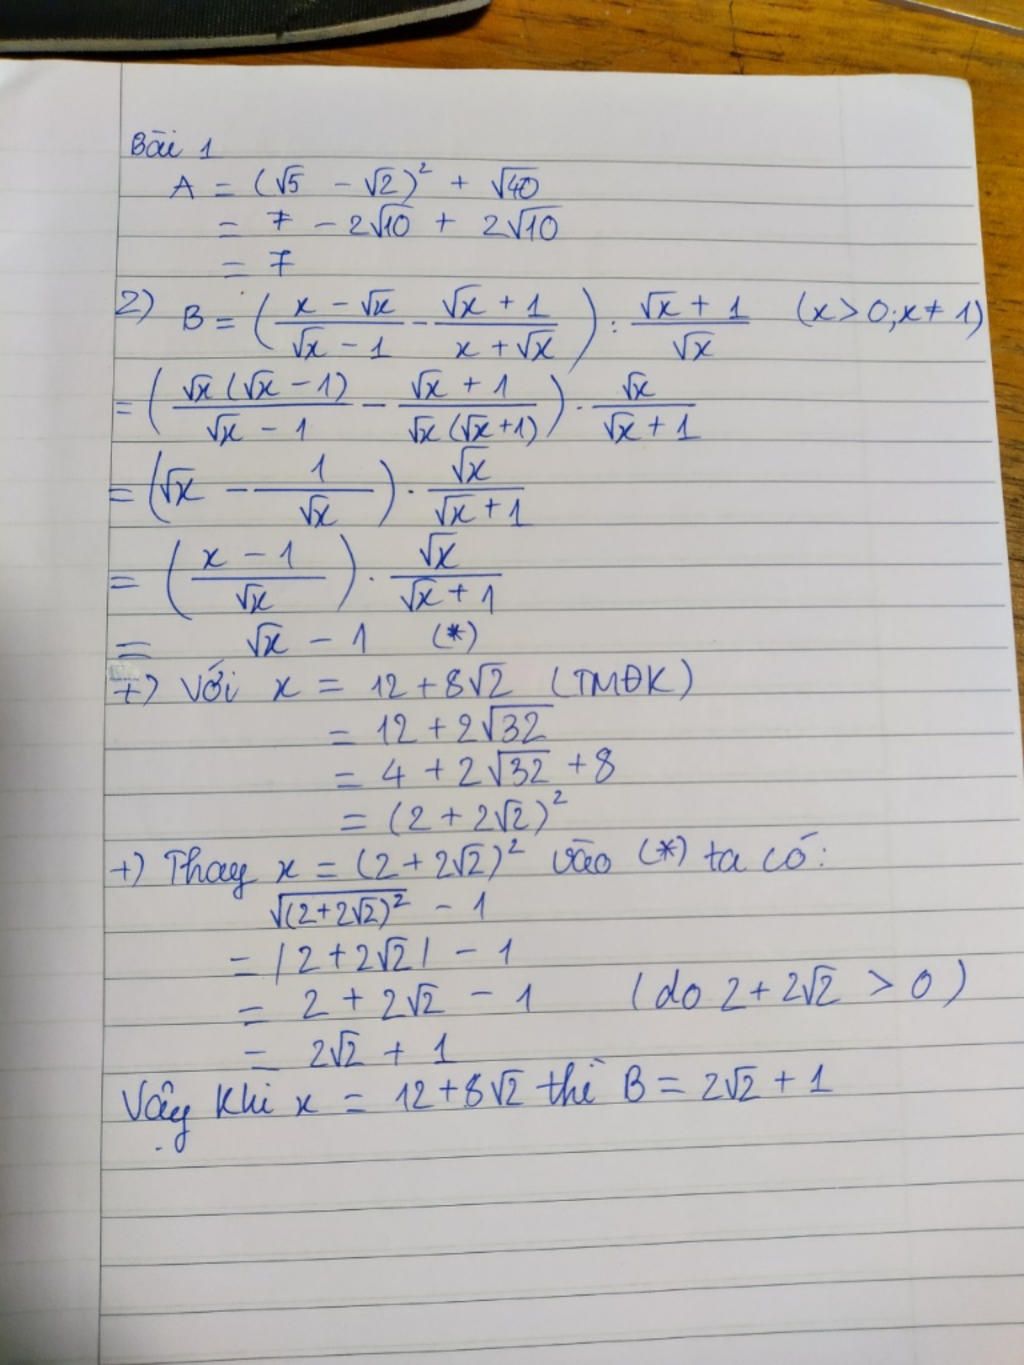 Bài 1
A = (√5 - √2)² + √40
= 7 - 2√10 + 2√10
= 7
2) B = ( (x - √x)/(√x - 1) - (√x + 1)/(x + √x) ) : (√x + 1)/√x (x > 0; x ≠ 1)
= ( √x(√x - 1)/(√x - 1) - (√x + 1)/(√x(√x + 1)) ) · √x/(√x + 1)
= ( √x - 1/√x ) · √x/(√x + 1)
= ( (x - 1)/√x ) · √x/(√x + 1)
= √x - 1 (*)
+) Với x = 12 + 8√2 (TMĐK)
= 12 + 2√32
= 4 + 2√32 + 8
= (2 + 2√2)²
+) Thay x = (2 + 2√2)² vào (*) ta có:
√((2+2√2)²) - 1
= |2 + 2√2| - 1
= 2 + 2√2 - 1 (do 2 + 2√2 > 0)
= 2√2 + 1
Vậy khi x = 12 + 8√2 thì B = 2√2 + 1